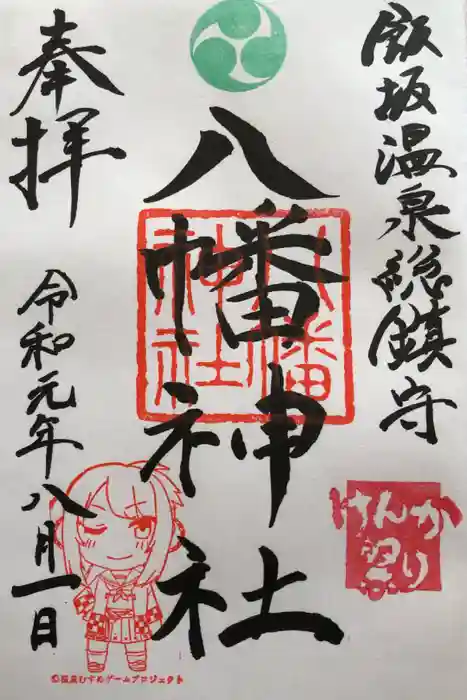 飯坂温泉総鎮守
八幡神社
八幡
神社
奉拝
令和元年八月一日
けんか
祭り
©温泉むすめゲームプロジェクト